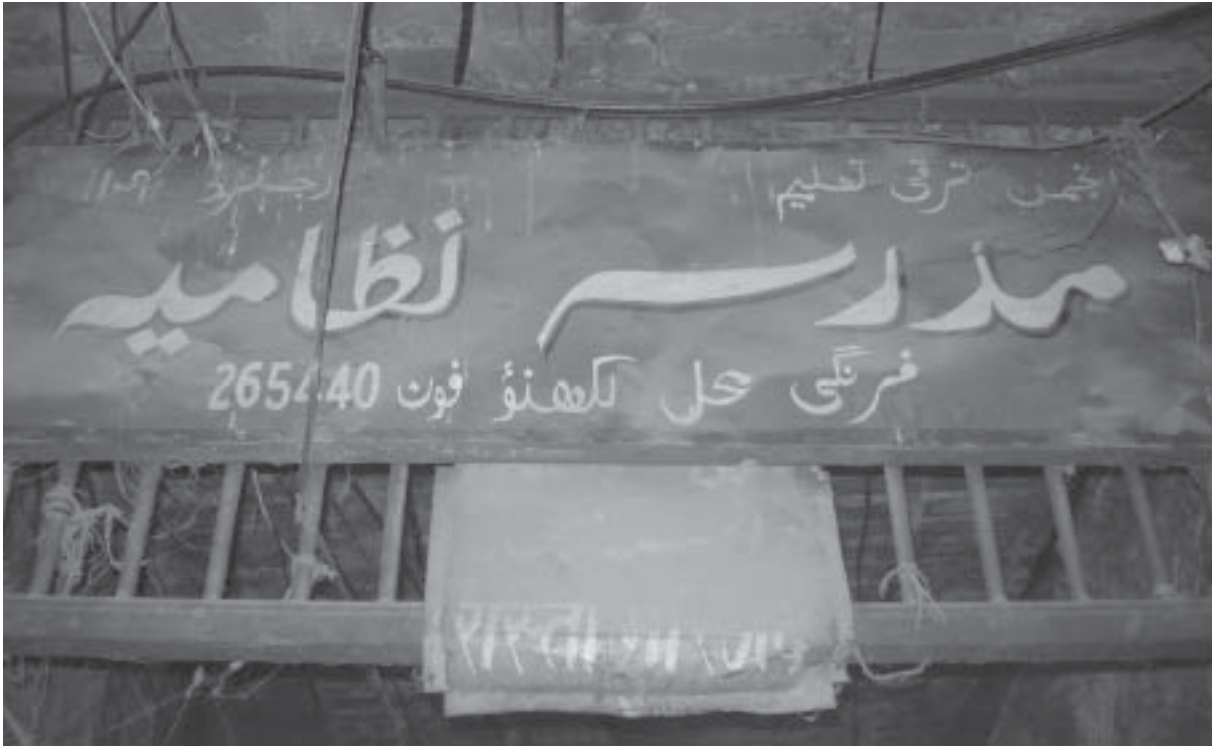 انجمن ترقی تعلیم رجسٹرڈ
مدرسہ نظامیہ
فرنگی محل لکھنؤ فون 265440